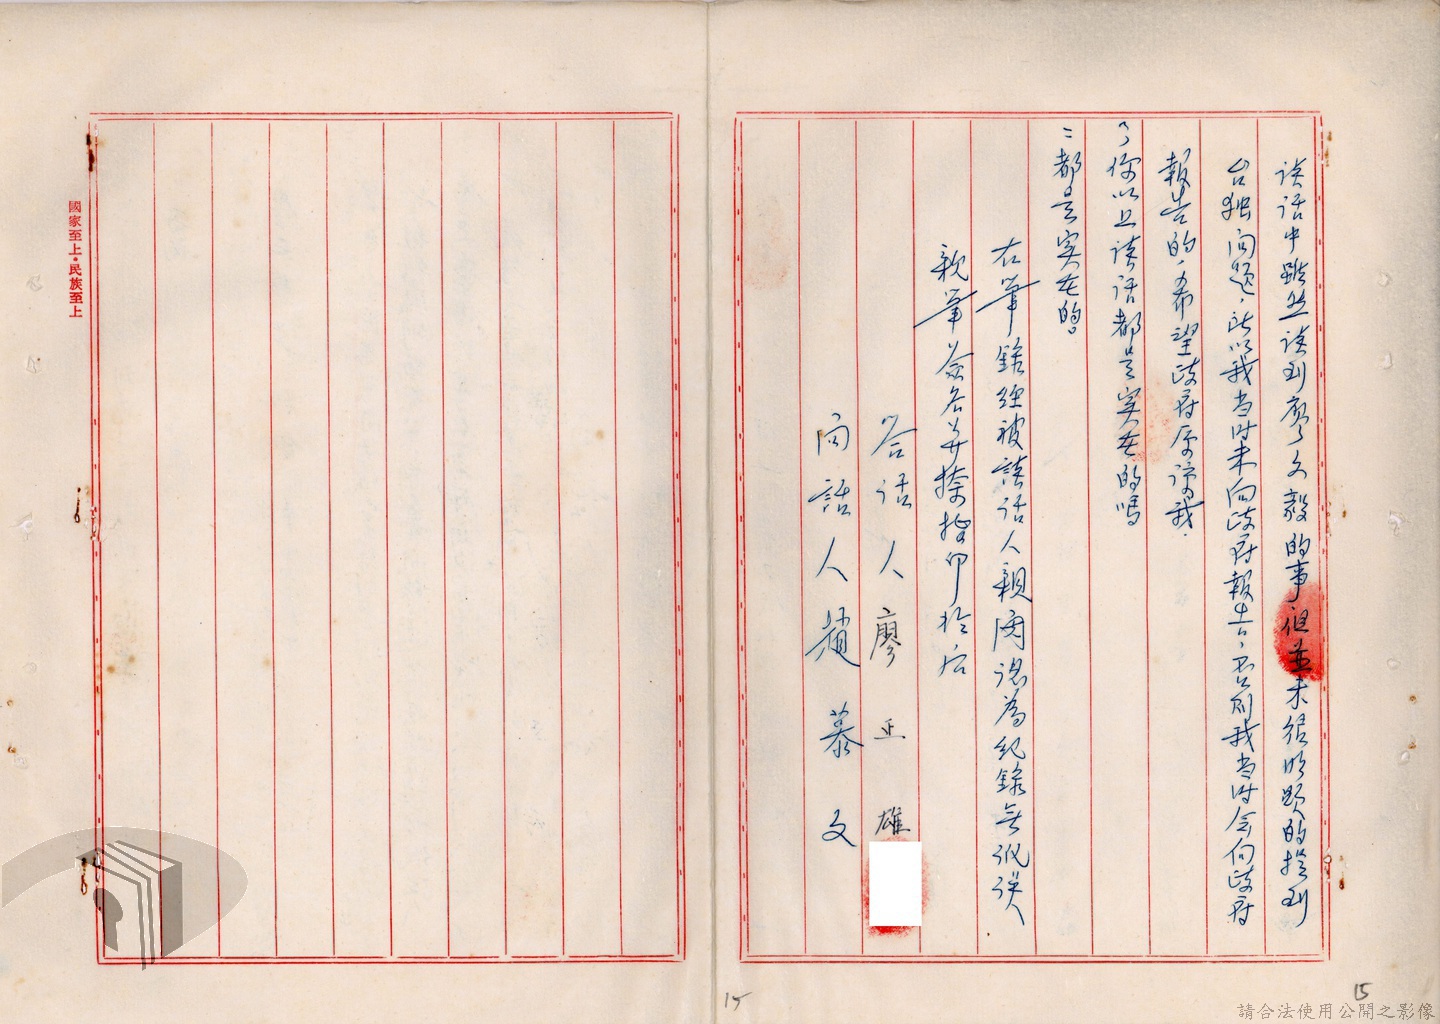 談话中雖然谈到廖文毅的事但並未很明顕的提到
台独问题，所以我当时未向政府報告，否则我当时会向政府
報告的，希望政府原谅我．
问你以上談话都是实在的嗎
：都是实在的。
右筆錄經被談话人親閱認為紀錄無訛误
親筆簽名並捺指印於后
答话人廖正雄
问話人趙慕文
國家至上・民族至上
15
15
請合法使用公開之影像